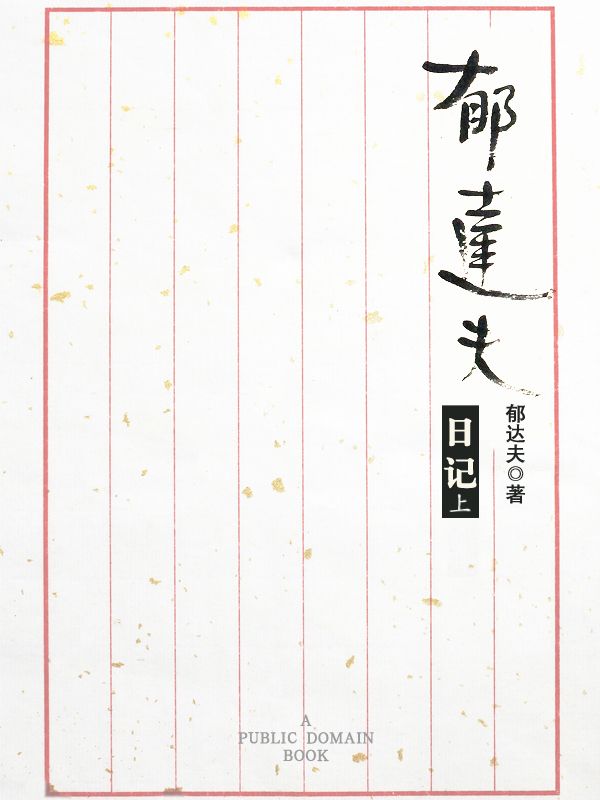 郁達夫
日记
上
郁达夫◎著
A
PUBLIC DOMAIN
BOOK